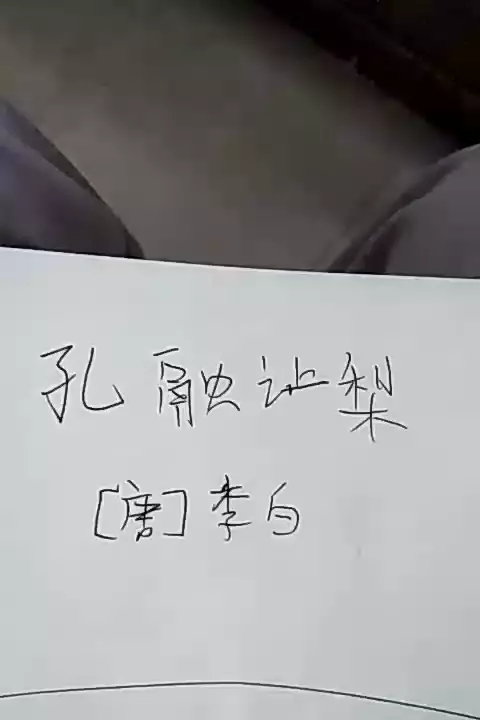 孔融让梨
[唐]李白